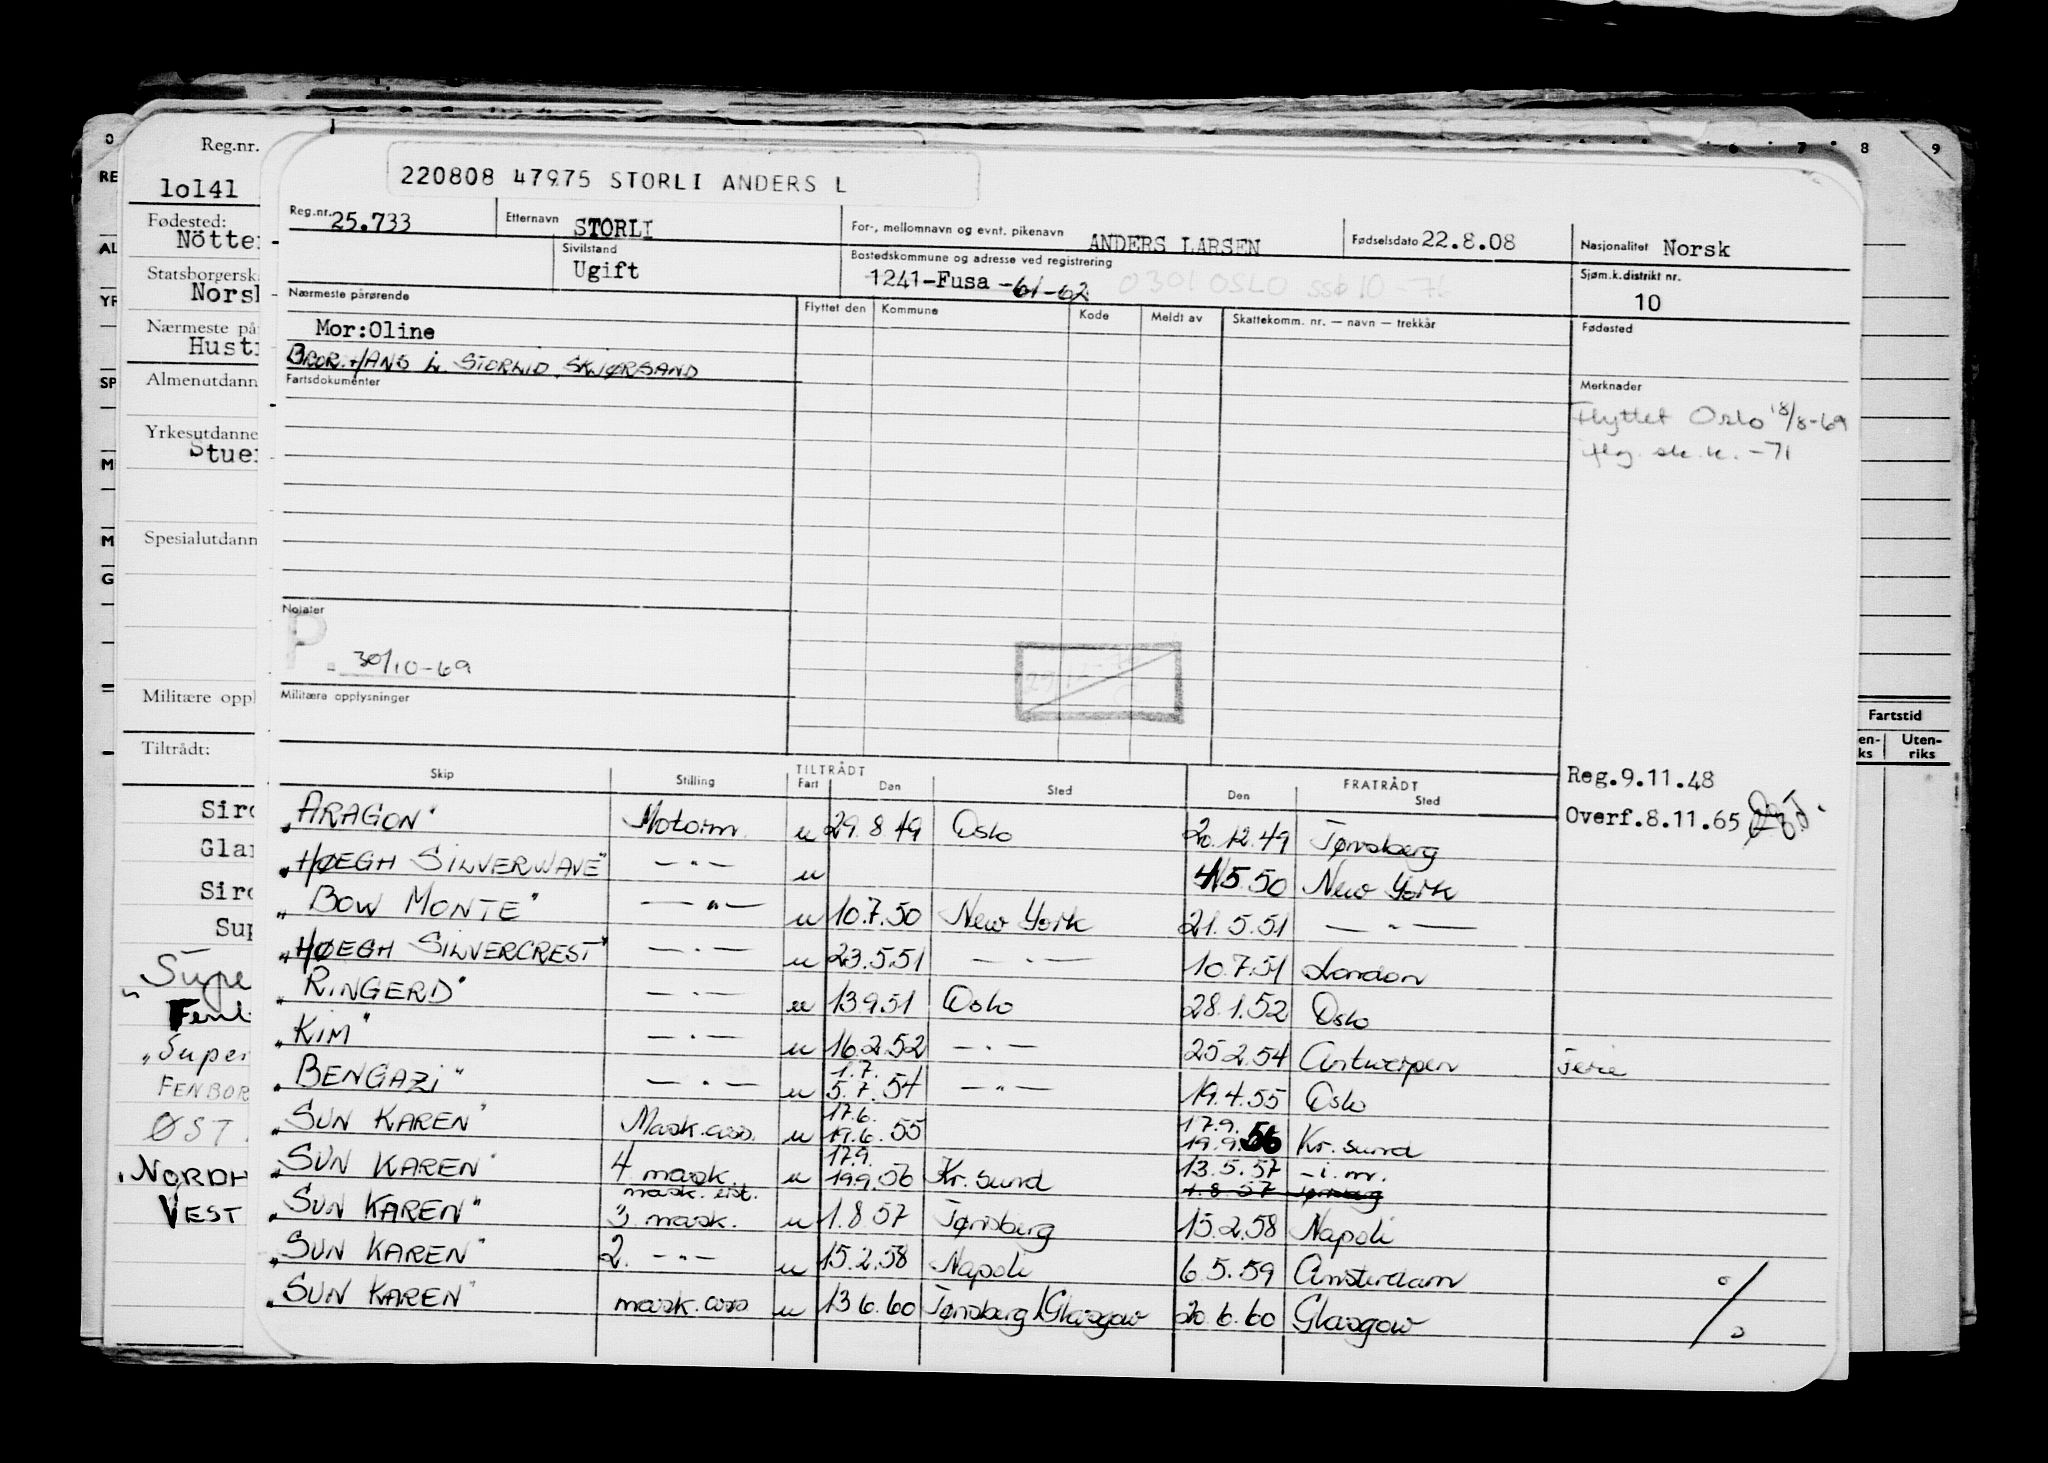 220808 47975 STORLI ANDERS L
Reg.nr. 25.733 Etternavn STORLI For-, mellomnavn og evnt. pikenavn ANDERS LARSEN Fødselsdato 22.8.08 Nasjonalitet Norsk
Sivilstand Ugift Bostedskommune og adresse ved registrering 1241-Fusa -61-62 0301 OSLO Sjøm.k.distrikt nr. 10
Nærmeste pårørende Flyttet den Kommune Kode Meldt av Skattekomm. nr. — navn — trekkår Fødested
Mor:Oline
BROR. HANS L. STORLID, SKJØRSAND
Fartsdokumenter Merknader
Flyttet Oslo 18/8-69
sk.k. -71
Notater
P. - 30/10-69
Militære opplysninger
Reg.9.11.48
Overf.8.11.65
Skip Stilling TILTRÅDT Fart Den Sted FRATRÅDT Den Sted
"ARAGON" Motorm. u 29.8.49 Oslo 20.12.49 Tønsberg
"HØEGH SILVERWAVE" — " — u 5.50 New York
"BOW MONTE" — " — u 10.7.50 New York 21.5.51 — " —
"HØEGH SILVERCREST" — " — u 23.5.51 — " — 10.7.51 London
"RINGERD" — " — u 13.9.51 Oslo 28.1.52 Oslo
"KIM" — " — u 16.2.52 — " — 25.2.54 Antwerpen Ferie
"BENGAZI" — " — u 1.7. 5.7.54 — " — 19.4.55 Oslo
"SUN KAREN" Mask.ass. u 17.6. 19.6.55 17.9. 19.9.56 Kr.sund
"SUN KAREN" 4 mask. u 17.9. 19.9.56 Kr.sund 13.5.57 - i.m.
mask. 1.8.57 Tønsberg
"SUN KAREN" 3 mask. u 1.8.57 Tønsberg 15.2.58 Napoli
"SUN KAREN" 2. — " — u 15.2.58 Napoli 6.5.59 Amsterdam
"SUN KAREN" mask.ass u 13.6.60 Tønsberg/Glasgow 20.6.60 Glasgow
Reg.nr.
1o141
Fødested:
Nötte
Statsborgersk
Nors
Nærmeste på
Hust
Almenutdann
Yrkesutdanne
Stue
Spesialutdann
Militære oppl
Tiltrådt:
Siro
Gla
Siro
Sup
"Supe
"Super
FENBOR
ØST
"NORDH
VEST
RE
AL
YR
SP
M
M
G
6 7 8 9
Fartstid
en-ks Uten-riks